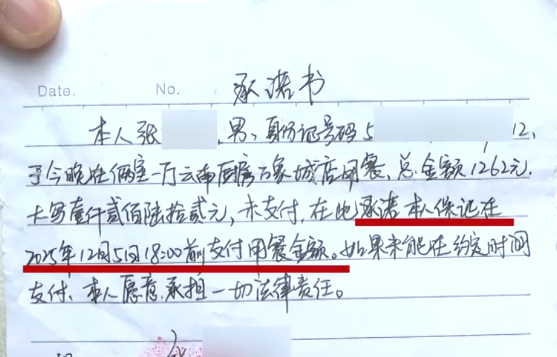 Date. No. 承诺书
本人张 ,男,身份证号码5 12,
于今晚在俩室一厅云南厨房万象城店用餐,总金额1262元.
大写壹仟贰佰陆拾贰元,未支付,在此承诺本人保证在
2025年12月5日18:00前支付用餐金额。如果未能在约定时间
支付,本人愿意承担一切法律责任。